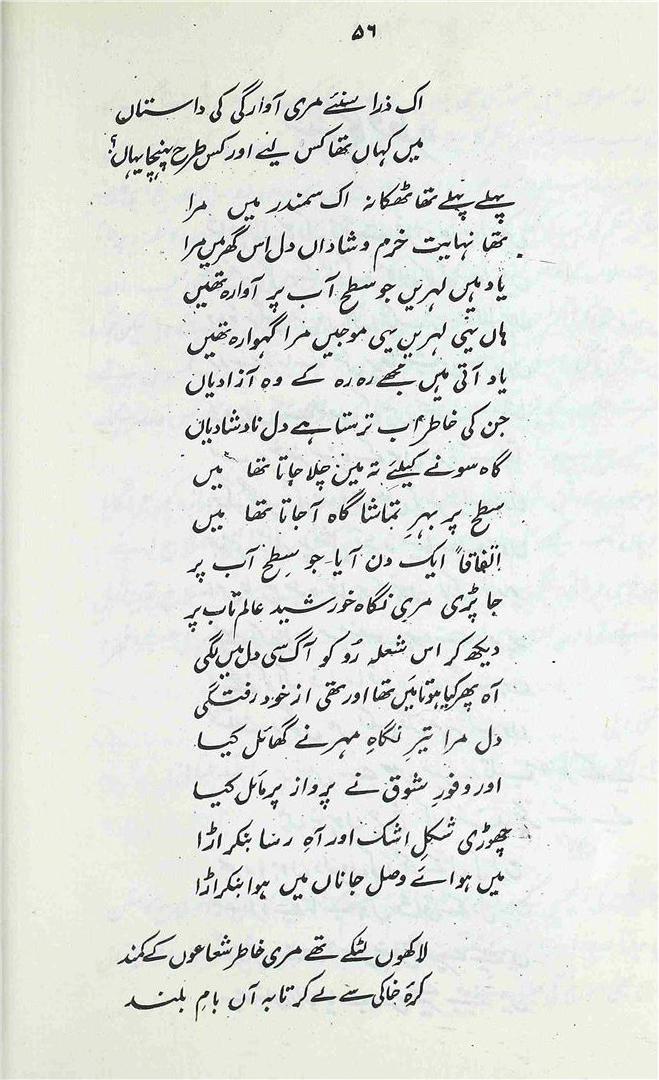 ۵۶
اک ذرا سنئے مری آوارگی کی داستان
میں کہاں تھا کس لیے اور کس طرح پہنچا یہاں؟
پہلے پہلے تھا ٹھکانہ اک سمندر میں مرا
تھا نہایت خرم و شاداں دل اس گھر میں مرا
یاد ہیں لہریں جو سطح آب پر آوارہ تھیں
ہاں یہی لہریں یہی موجیں مرا گہوارہ تھیں
یاد آتی ہیں مجھے رہ رہ کے وہ آزادیاں
جن کی خاطر اب ترستا ہے دل ناد شادیاں
گاہ سونے کیلئے تہ میں چلا جاتا تھا میں
سطح پر بہرِ تماشا گاہ آجاتا تھا میں
اتفاقاً ایک دن آیا جو سطحِ آب پر
جا پڑی مری نگاہ خورشید عالم تاب پر
دیکھ کر اس شعلہ رُو کو آگ سی دل میں لگی
آہ پھر کیا ہوتا میں تھا اور تھی از خود رفتگی
دل مرا تیرِ نگاہِ مہر نے گھائل کیا
اور وفورِ شوق نے پرواز پر مائل کیا
چھوڑی شکلِ اشک اور آہِ رسا بنکر اڑا
میں ہوائے وصل جاناں میں ہوا بنکر اڑا
لاکھوں لٹکے تھے مری خاطر شعاعوں کے کمند
کرۂ خاکی سے لے کر تا بہ آں بامِ بلند